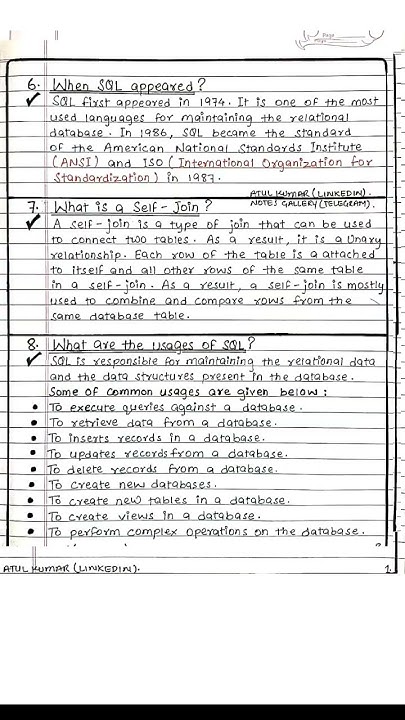 Page
6. When SQL appeared?
SQL first appeared in 1974. It is one of the most
used languages for maintaining the relational
database. In 1986, SQL became the standard
of the American National Standards Institute
(ANSI) and ISO (International Organization for
Standardization) in 1987.
ATUL KUMAR (LINKEDIN).
NOTES GALLERY (TELEGRAM).
7. What is a Self-Join?
A self-join is a type of join that can be used
to connect two tables. As a result, it is a Unary
relationship. Each row of the table is attached
to itself and all other rows of the same table
in a self-join. As a result, a self-join is mostly
used to combine and compare rows from the
same database table.
8. What are the usages of SQL?
SQL is responsible for maintaining the relational data
and the data structures present in the database.
Some of common usages are given below:
• To execute queries against a database.
• To retrieve data from a database.
• To inserts records in a database.
• To updates records from a database.
• To delete records from a database.
• To create new databases.
• To create new tables in a database.
• To create views in a database.
• To perform complex operations on the database.
ATUL KUMAR (LINKEDIN).
1.